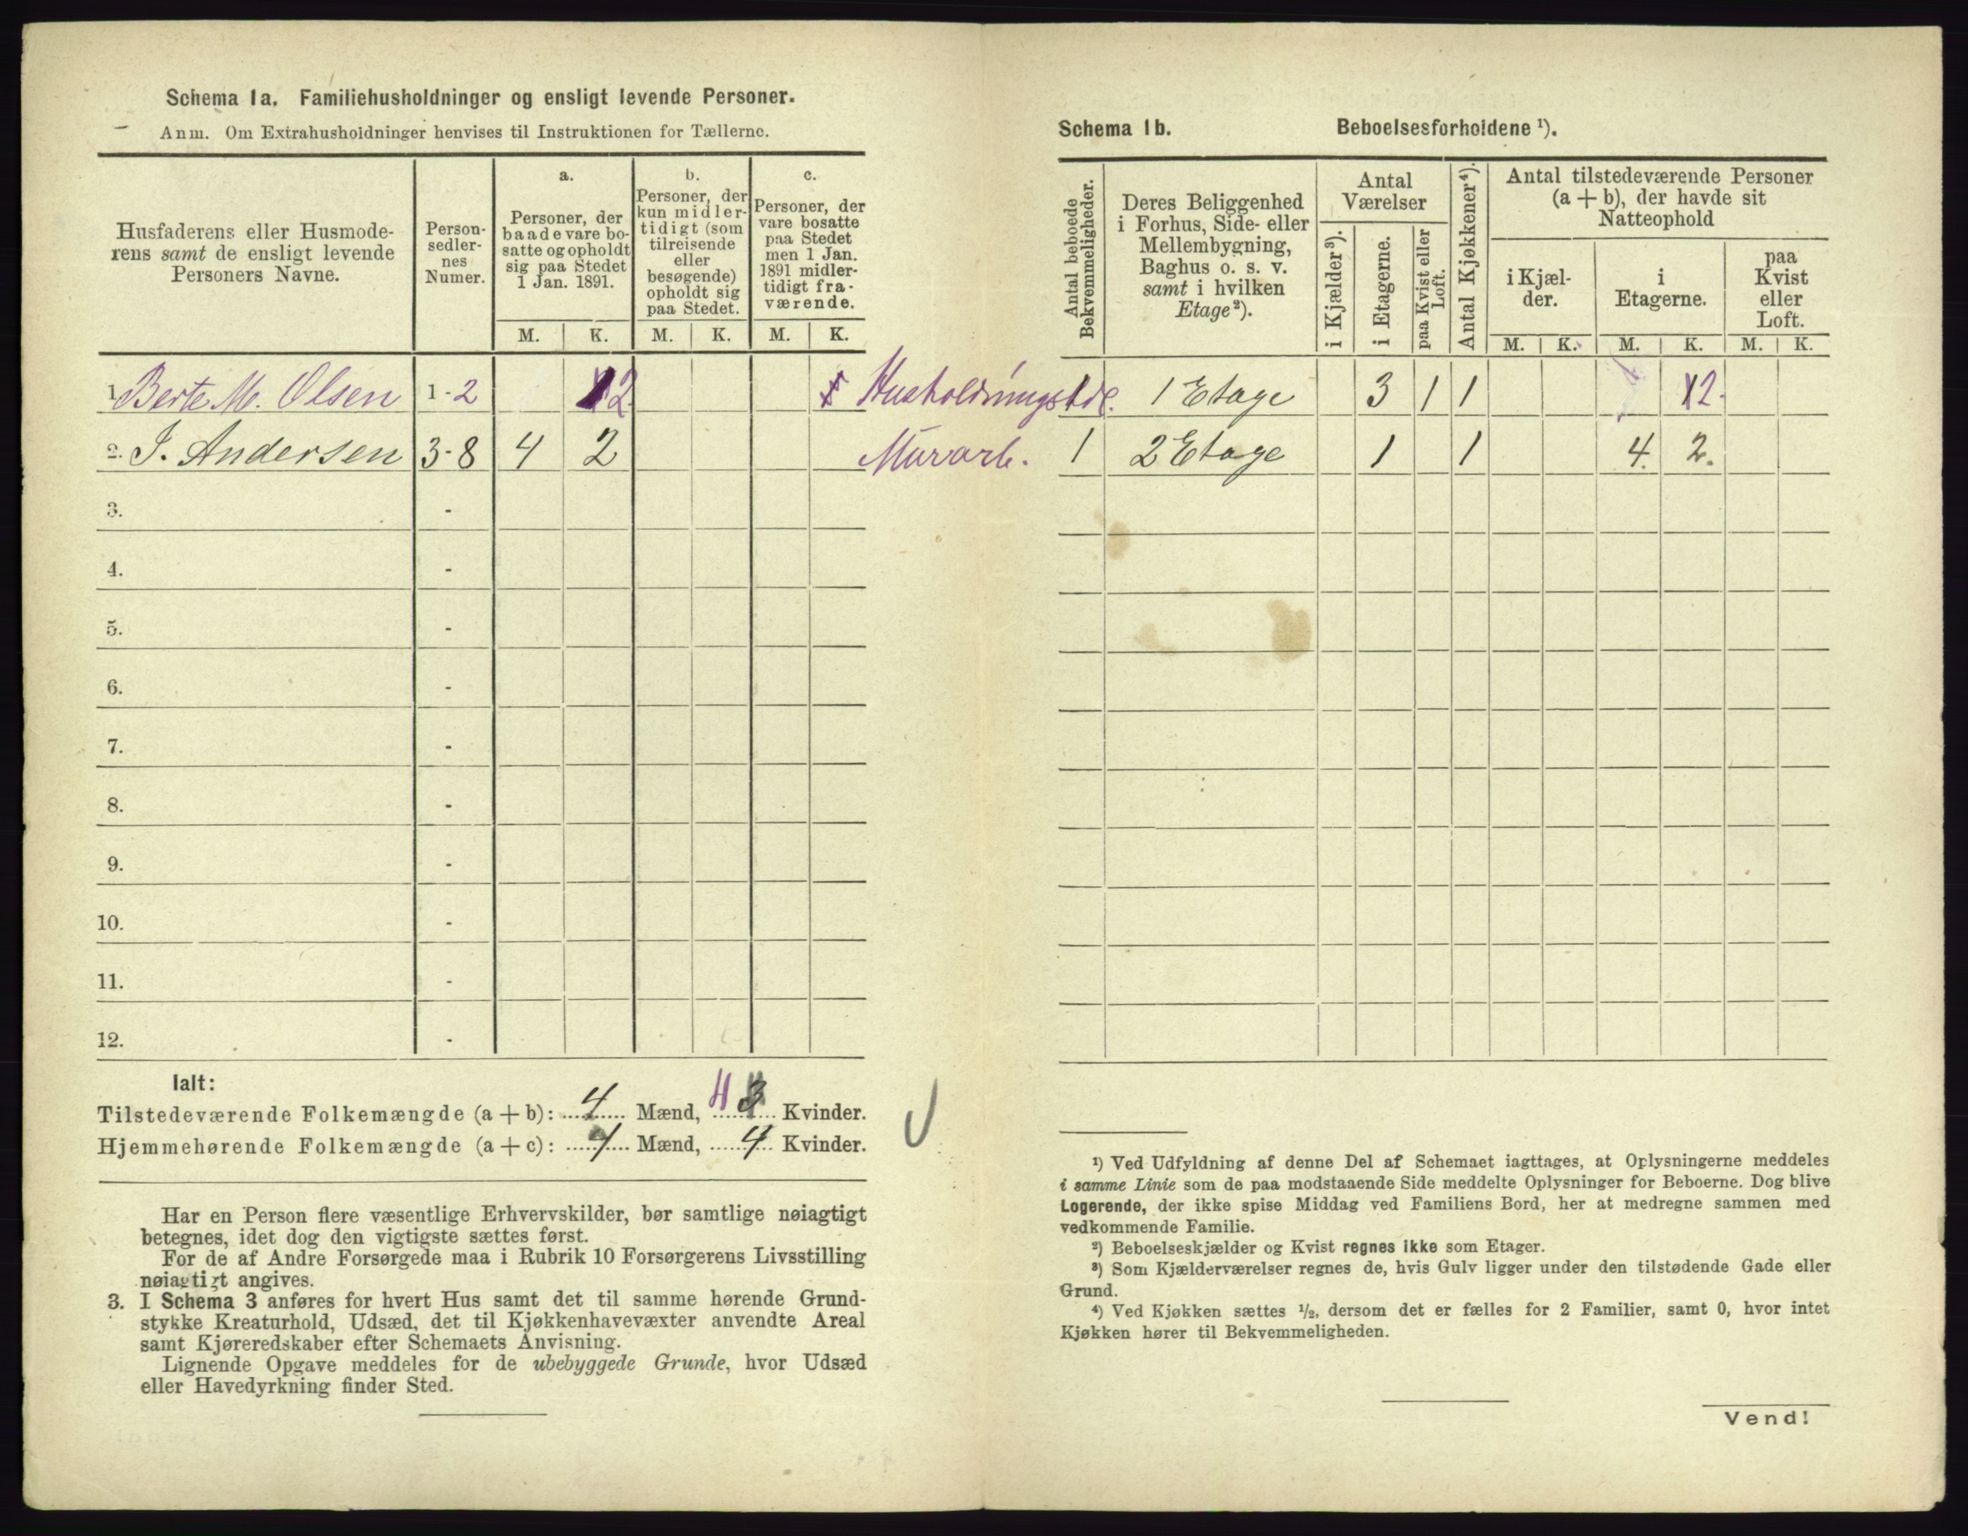 Schema 1a. Familiehusholdninger og ensligt levende Personer.
Anm. Om Extrahusholdninger henvises til Instruktionen for Tællerne.
Husfaderens eller Husmode-
rens samt de ensligt levende
Personers Navne.
Person-
sedler-
nes
Numer.
a.
Personer, der
baade vare bo-
satte og opholdt
sig paa Stedet
1 Jan. 1891.
b.
Personer, der
kun midler-
tidigt (som
tilreisende
eller
besøgende)
opholdt sig
paa Stedet.
c.
Personer, der
vare bosatte
paa Stedet
men 1 Jan.
1891 midler-
tidigt fra-
værende.
M. K. M. K. M. K.
1. Berte M. Olsen 1-2 2
2. J. Andersen 3-8 4 2
3. -
4. -
5. -
6. -
7. -
8. -
9. -
10. -
11. -
12. -
Ialt:
Tilstedeværende Folkemængde (a + b): 4 Mænd, 4 3 Kvinder.
Hjemmehørende Folkemængde (a + c): 4 Mænd, 4 Kvinder.
Har en Person flere væsentlige Erhvervskilder, bør samtlige nøiagtigt
betegnes, idet dog den vigtigste sættes først.
For de af Andre Forsørgede maa i Rubrik 10 Forsørgerens Livsstilling
nøiagtigt angives.
3. I Schema 3 anføres for hvert Hus samt det til samme hørende Grund-
stykke Kreaturhold, Udsæd, det til Kjøkkenhavevæxter anvendte Areal
samt Kjøreredskaber efter Schemaets Anvisning.
Lignende Opgave meddeles for de ubebyggede Grunde, hvor Udsæd
eller Havedyrkning finder Sted.
Schema 1b. Beboelsesforholdene ¹).
Antal beboede
Bekvemmeligheder.
Deres Beliggenhed
i Forhus, Side- eller
Mellembygning,
Baghus o. s. v.
samt i hvilken
Etage²).
Antal
Værelser
i Kjælder³).
i Etagerne.
paa Kvist eller
Loft.
Antal Kjøkkener⁴).
Antal tilstedeværende Personer
(a + b), der havde sit
Natteophold
i Kjæl-
der.
i
Etagerne.
paa
Kvist
eller
Loft.
M. K. M. K. M. K.
1 1 Etage 3 1 1 2.
Murarb. 1 2 Etage 1 1 4. 2.
¹) Ved Udfyldning af denne Del af Schemaet iagttages, at Oplysningerne meddeles
i samme Linie som de paa modstaaende Side meddelte Oplysninger for Beboerne. Dog blive
Logerende, der ikke spise Middag ved Familiens Bord, her at medregne sammen med
vedkommende Familie.
²) Beboelseskjælder og Kvist regnes ikke som Etager.
³) Som Kjælderværelser regnes de, hvis Gulv ligger under den tilstødende Gade eller
Grund.
⁴) Ved Kjøkken sættes ½, dersom det er fælles for 2 Familier, samt 0, hvor intet
Kjøkken hører til Bekvemmeligheden.
Vend!